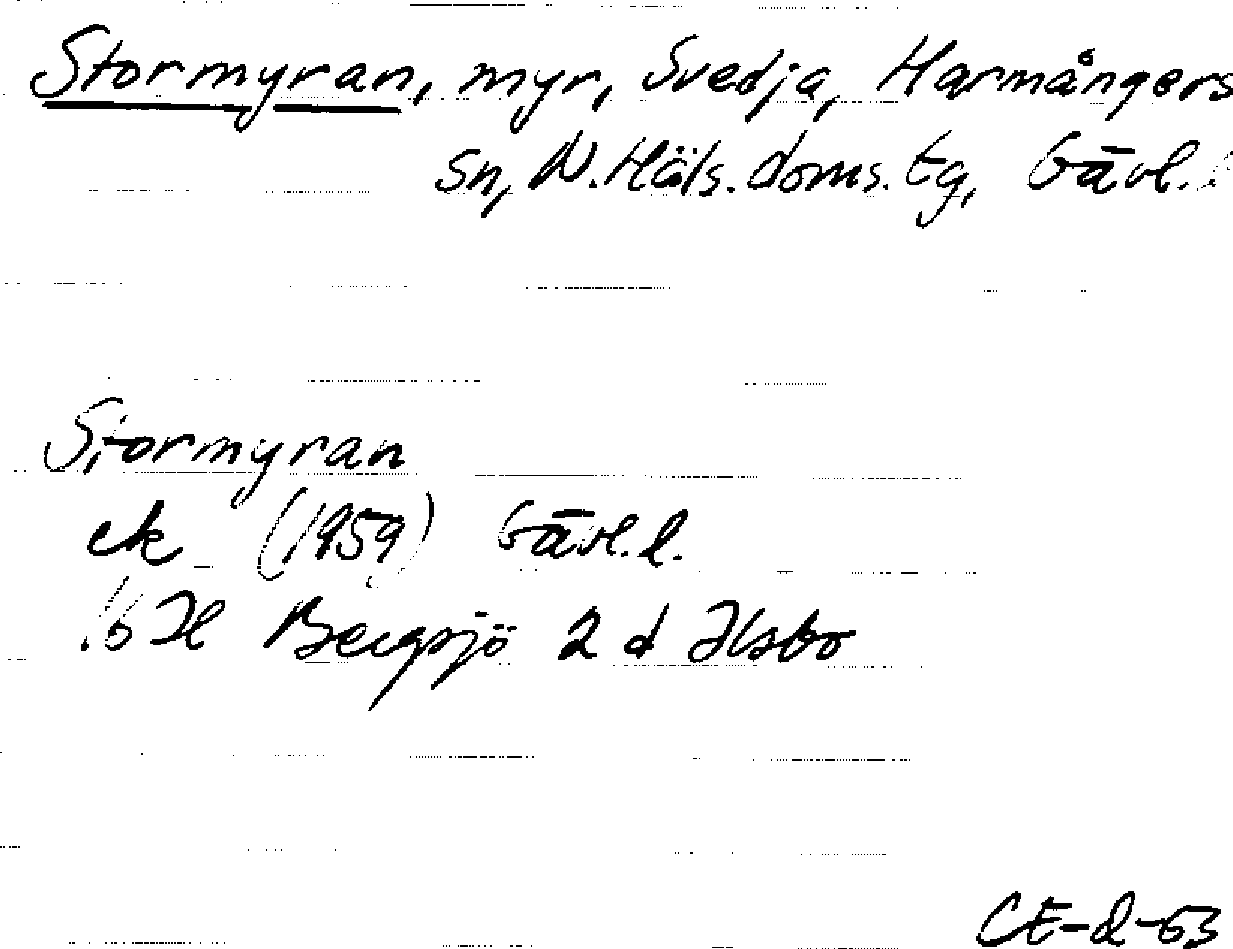 Stormyran, myr, Svedja, Harmångers
sn, N. Häls. doms. tg, Gävl. l
Stormyran
ek (1959) Gävl. l.
16 H Bergsjö 2 d Ilsbo
CE-2-63